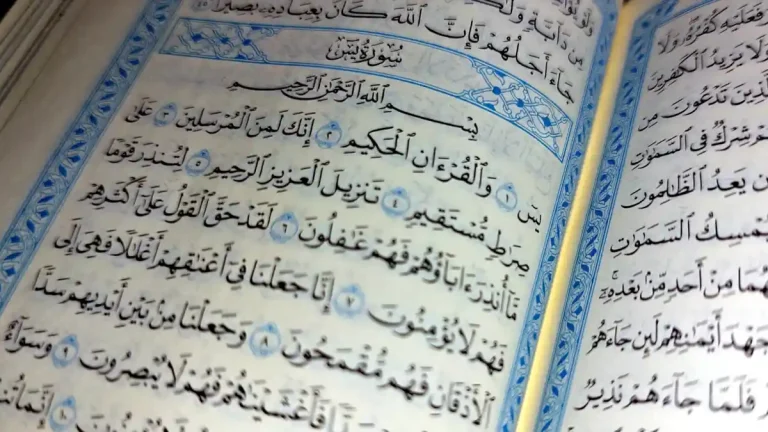 فَعَلَيْهِ كُفْرُهُۥ وَلَا
وَلَا يَزِيدُ ٱلْكَٰفِرِينَ
ٱلَّذِينَ تَدْعُونَ مِن
شِرْكٌ فِى ٱلسَّمَٰوَٰتِ
يَعِدُ ٱلظَّٰلِمُونَ
يُمْسِكُ ٱلسَّمَٰوَٰتِ
مِنْ أَحَدٍ مِّنۢ بَعْدِهِۦٓ
جَهْدَ أَيْمَٰنِهِمْ لَئِن جَآءَهُمْ
فَلَمَّا جَآءَهُمْ نَذِيرٌ
مِن دَآبَّةٍ
جَآءَ أَجَلُهُمْ فَإِنَّ ٱللَّهَ كَانَ بِعِبَادِهِۦ بَصِيرًۢا ٤٥
سُورَةُ يسٓ
بِسْمِ ٱللَّهِ ٱلرَّحْمَٰنِ ٱلرَّحِيمِ
يسٓ ١ وَٱلْقُرْءَانِ ٱلْحَكِيمِ ٢ إِنَّكَ لَمِنَ ٱلْمُرْسَلِينَ ٣ عَلَىٰ
صِرَٰطٍ مُّسْتَقِيمٍ ٤ تَنزِيلَ ٱلْعَزِيزِ ٱلرَّحِيمِ ٥ لِتُنذِرَ قَوْمًا
مَّآ أُنذِرَ ءَابَآؤُهُمْ فَهُمْ غَٰفِلُونَ ٦ لَقَدْ حَقَّ ٱلْقَوْلُ عَلَىٰٓ أَكْثَرِهِمْ
فَهُمْ لَا يُؤْمِنُونَ ٧ إِنَّا جَعَلْنَا فِىٓ أَعْنَٰقِهِمْ أَغْلَٰلًا فَهِىَ إِلَى
ٱلْأَذْقَانِ فَهُم مُّقْمَحُونَ ٨ وَجَعَلْنَا مِنۢ بَيْنِ أَيْدِيهِمْ سَدًّا
سَدًّا فَأَغْشَيْنَٰهُمْ فَهُمْ لَا يُبْصِرُونَ ٩ وَسَوَآءٌ
١٠ إِنَّمَا تُنذِرُ